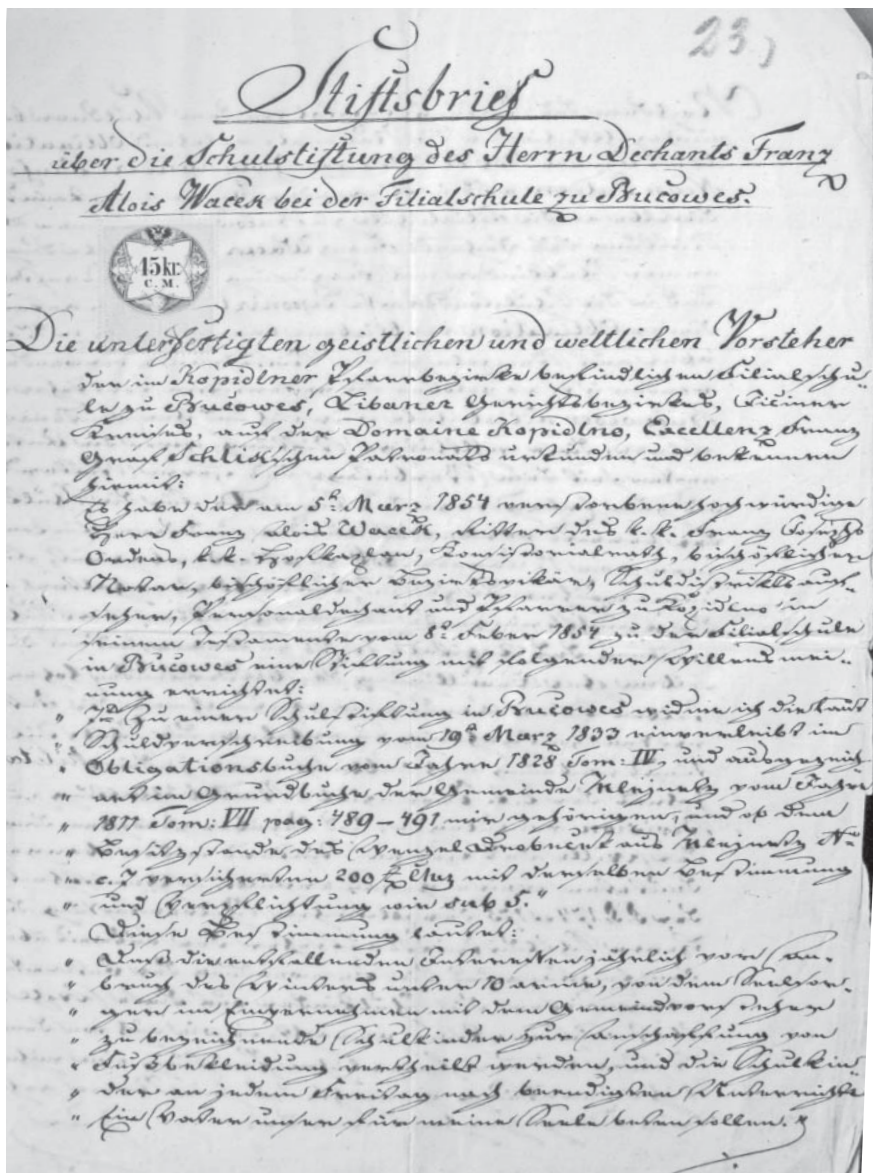 23
Stiftsbrief
über die Schulstiftung des Herrn Dechants Franz
Alois Wacek bei der Filialschule zu Bučowes.
15 kr.
C. M.
Die unterfertigten geistlichen und weltlichen Vorsteher
der im Kopidlner Pfarrbezirke befindlichen Filialschu-
le zu Bučowes, Libaner Gerichtsbezirkes, Jiciner
Kreises, auf der Domaine Kopidlno, Excellenz Franz
Graf Schlikschen Patronats urkunden und bekennen
hiemit:
Es habe der am 5t. März 1854 verstorbene hochwürdige
Herr Franz Alois Wacek, Ritter des k.k. Franz Josephs
Ordens, k.k. Hofkaplan, Konsistorialrath, bischöflicher
Notar, bischöflicher Bezirksvikär, Schuldistrikts auf-
seher, Personaldechant und Pfarrer zu Kopidlno in
seinem Testamente vom 8t. Feber 1854 zu der Filialschule
in Bučowes eine Stiftung mit folgender Willensmei-
nung errichtet:
" Zu einer Schulstiftung in Bučowes widme ich die laut
" Schuldverschreibung vom 19t. März 1833 einverleibt im
" Obligationsbuche vom Jahre 1828 Tom: IV, und ausgezeich-
" net im Grundbuche der Gemeinde vom Jahre
" 1811 Tom: VII pag: 489-491 mir gehörigen, und ob dem
" Besitzstande des Wenzel aus N
" c. 7 versicherten 200 f mit derselben Bestimmung
" und Verpflichtung wie sub 5."
Diese Bestimmung lautet:
" Daß die entfallenden Interessen jährlich vor An-
" bruch des Winters unter 10 arme, von dem Seelsor-
" ger im Einvernehmen mit dem Gemeindvorsteher
" zu bezeichnende Schulkinder zur Anschaffung von
" Fußbekleidung vertheilt werden, und die Schulkin-
" der an jedem Freitag nach beendigten Unterrichte
" Ein Vater unser für meine Seele beten sollen. "